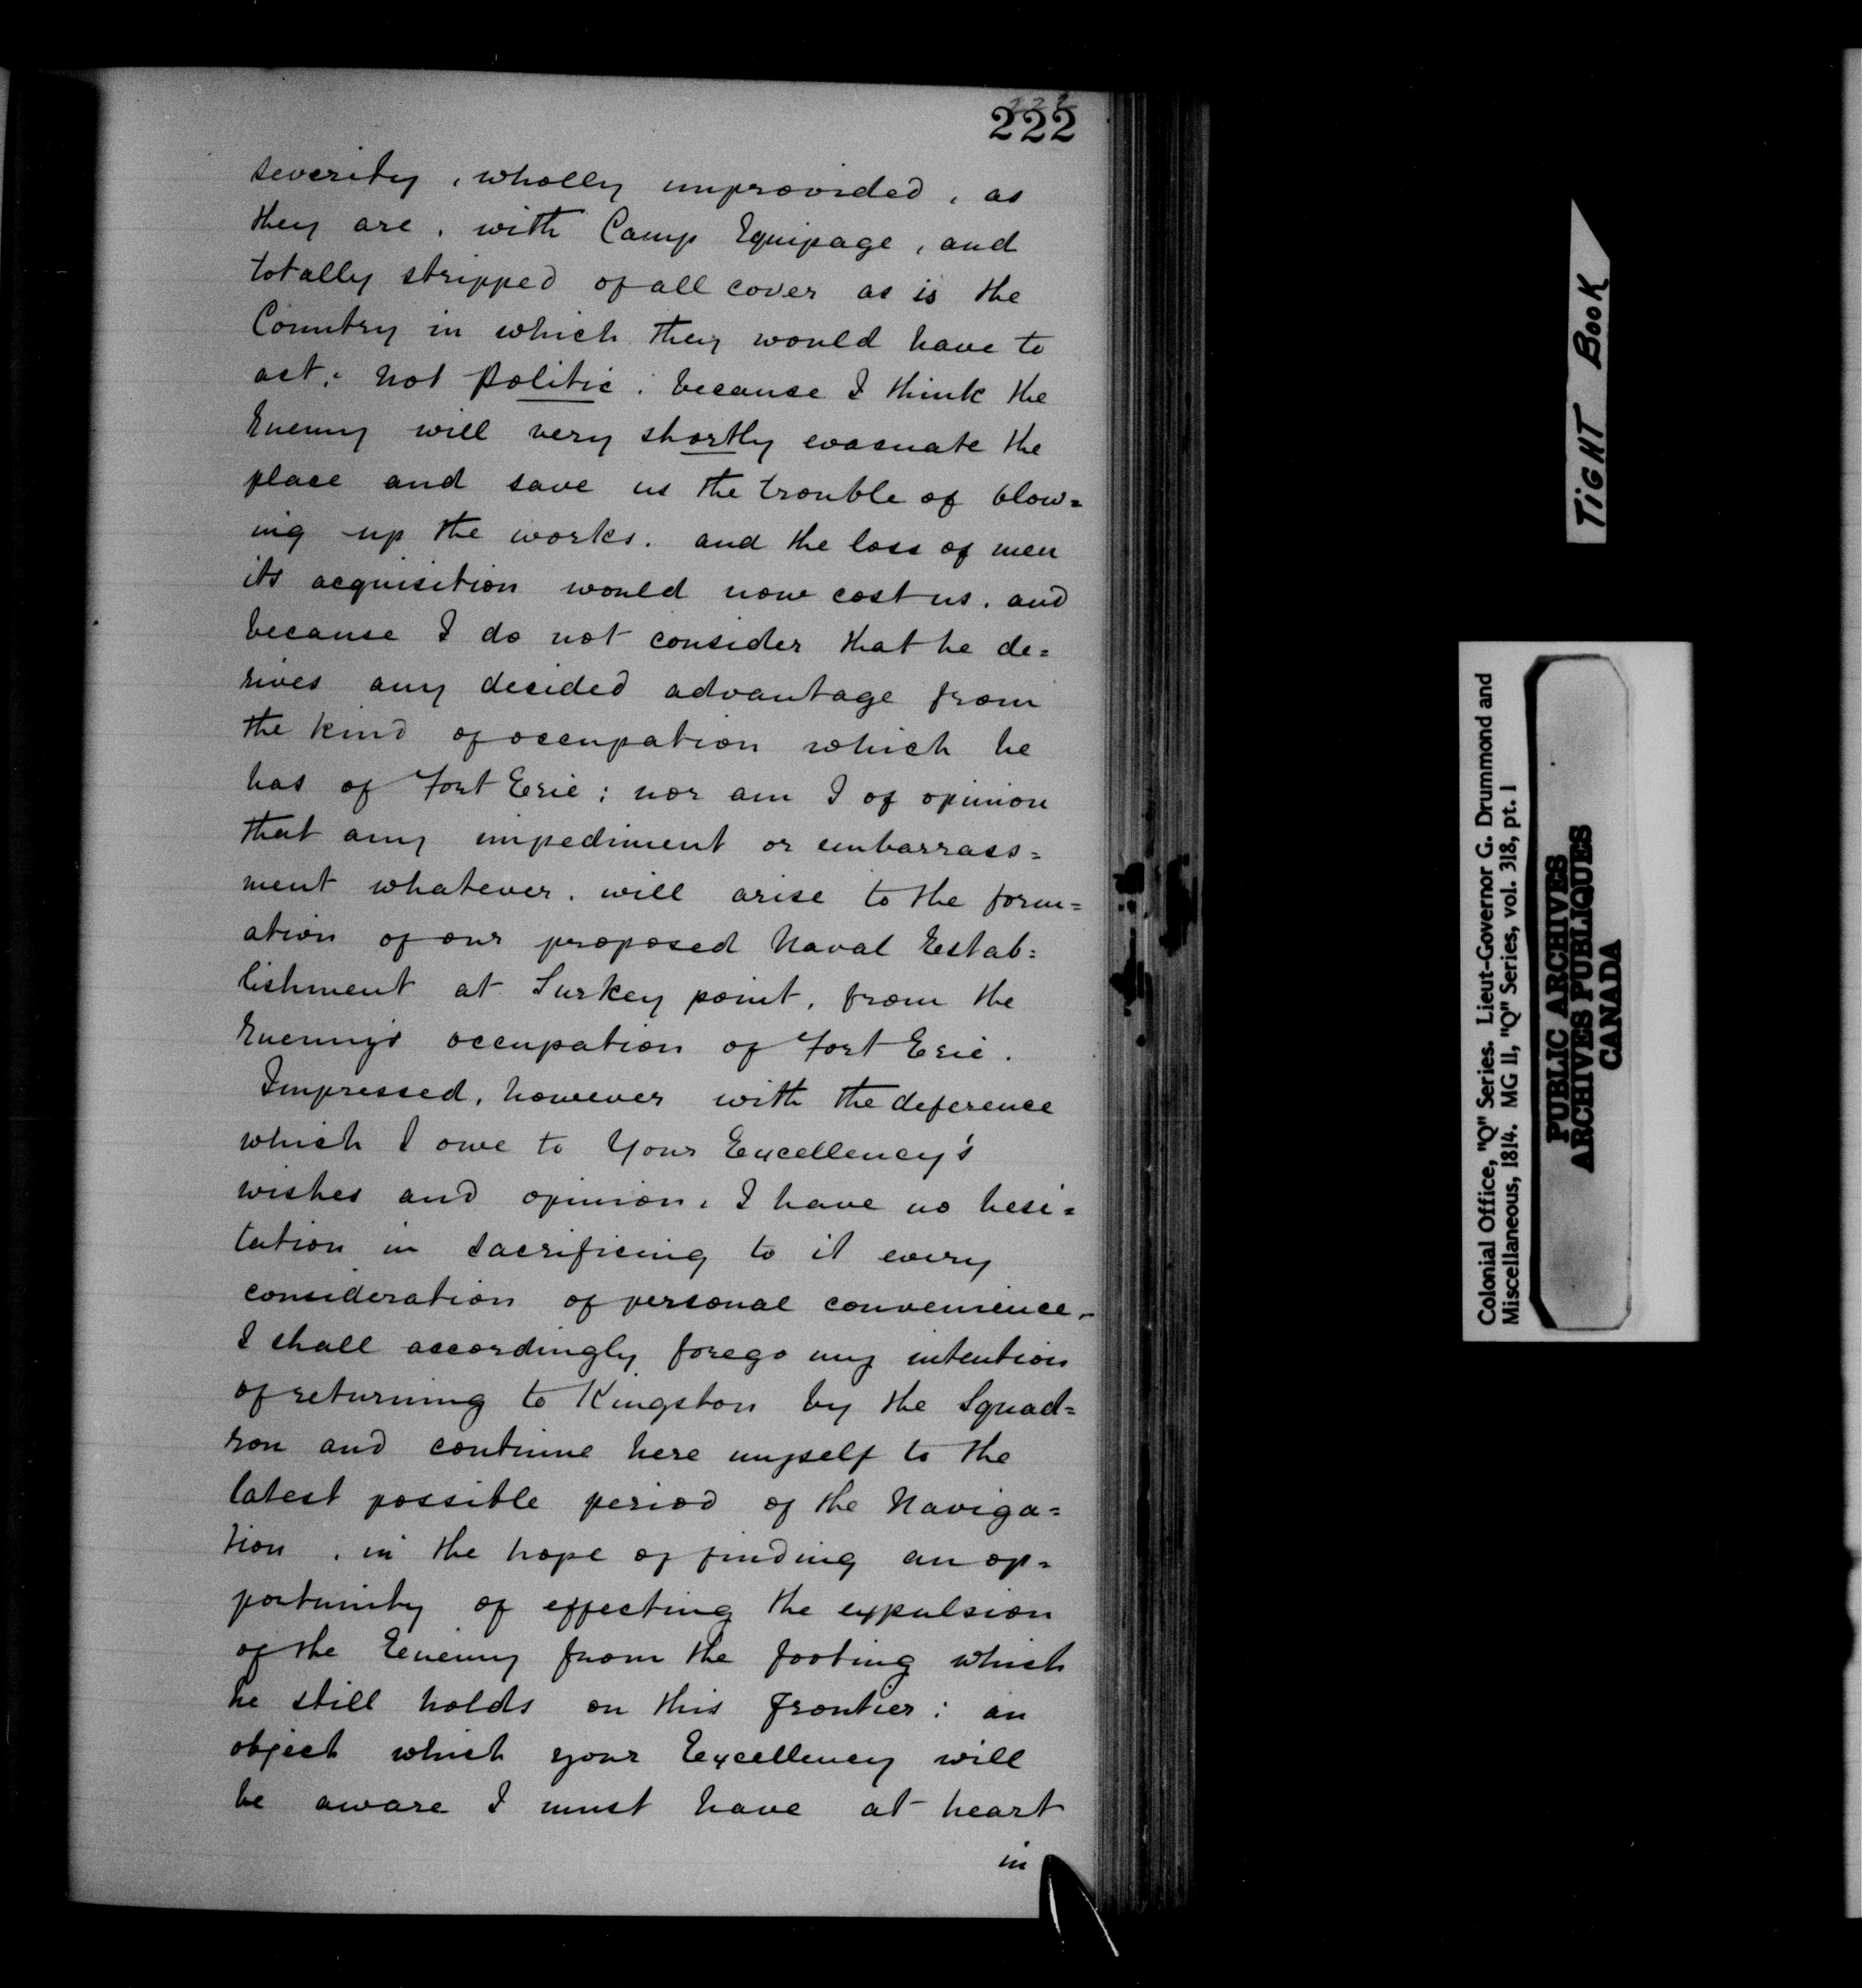 222
222
severity, wholly unprovided, as
they are, with Camp Equipage, and
totally stripped of all cover as is the
Country in which they would have to
act; not politic; because I think the
Enemy will very shortly evacuate the
place and save us the trouble of blow=
ing up the works, and the loss of men
its acquisition would now cost us, and
because I do not consider that he de=
rives any decided advantage from
the kind of occupation which he
has of Fort Erie; nor am I of opinion
that any impediment or embarrass=
ment whatever, will arise to the form=
ation of our proposed Naval Estab=
lishment at Turkey point, from the
Enemy's occupation of Fort Erie.
Impressed, however with the deference
which I owe to Your Excellency's
wishes and opinion, I have no hesi=
tation in sacrificing to it every
consideration of personal convenience.
I shall accordingly forego my intention
of returning to Kingston by the Squad=
ron and continue here myself to the
latest possible period of the Naviga=
tion, in the hope of finding an op=
portunity of effecting the expulsion
of the Enemy from the footing which
he still holds on this frontier; an
object which your Excellency will
be aware I must have at heart
in
TIGHT BOOK
Colonial Office, "Q" Series. Lieut-Governor G. Drummond and
Miscellaneous, 1814. MG 11, "Q" Series, vol. 318, pt. 1
PUBLIC ARCHIVES
ARCHIVES PUBLIQUES
CANADA